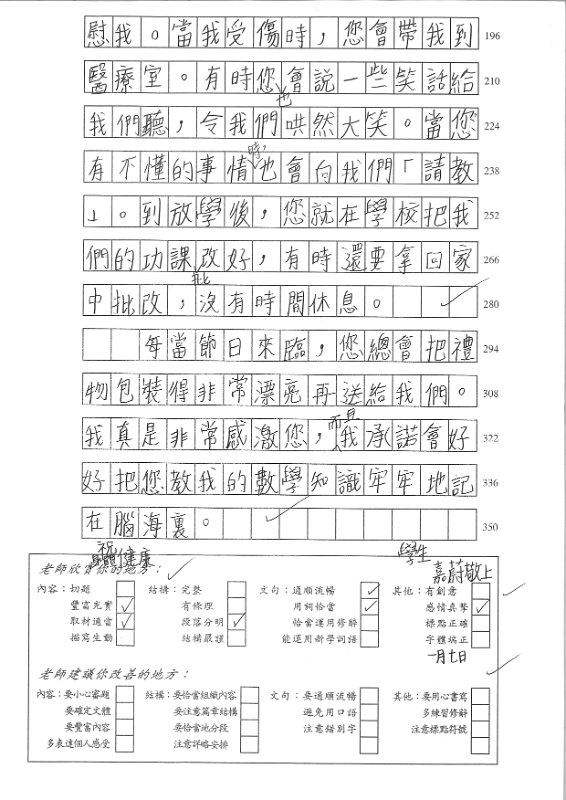 慰我。當我受傷時，您會帶我到 196
醫療室。有時您會說一些笑話給 210
也
我們聽，令我們哄然大笑。當您 224
時，
有不懂的事情也會向我們「請教 238
」。到放學後，您就在學校把我 252
們的功課改好，有時還要拿回家 266
批
中批改，沒有時間休息。 280
每當節日來臨，您總會把禮 294
物包裝得非常漂亮再送給我們。 308
而且
我真是非常感激您，我承諾會好 322
好把您教我的數學知識牢牢地記 336
在腦海裏。 350
祝 健康 學生
老師欣賞你的地方： 嘉蔚敬上
內容：切題 結構：完整 文句：通順流暢 其他：有創意
豐富充實 有條理 用詞恰當 感情真摯
取材適當 段落分明 恰當運用修辭 標點正確
描寫生動 結構嚴謹 能運用新學詞語 字體端正
一月七日
老師建議你改善的地方：
內容：要小心審題 結構：要恰當組織內容 文句：要通順流暢 其他：要用心書寫
要確定文體 要注意篇章結構 避免用口語 多練習修辭
要豐富內容 要恰當地分段 注意錯別字 注意標點符號
多表達個人感受 注意詳略安排